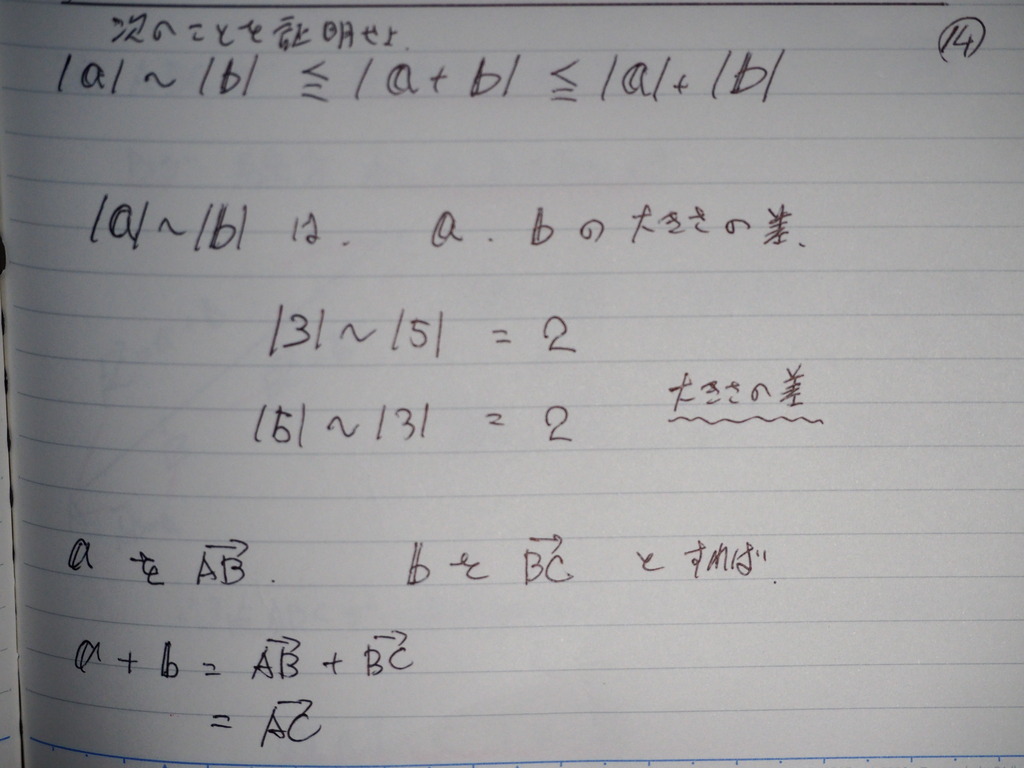 次のことを証明せよ.
⑭
|a| ~ |b| ≦ |a + b| ≦ |a| + |b|
|a| ~ |b| は. a . b の 大きさの差.
|3| ~ |5| = 2
|5| ~ |3| = 2
大きさの差
a を \overrightarrow{AB}. b を \overrightarrow{BC} とすれば.
a + b = \overrightarrow{AB} + \overrightarrow{BC}
= \overrightarrow{AC}